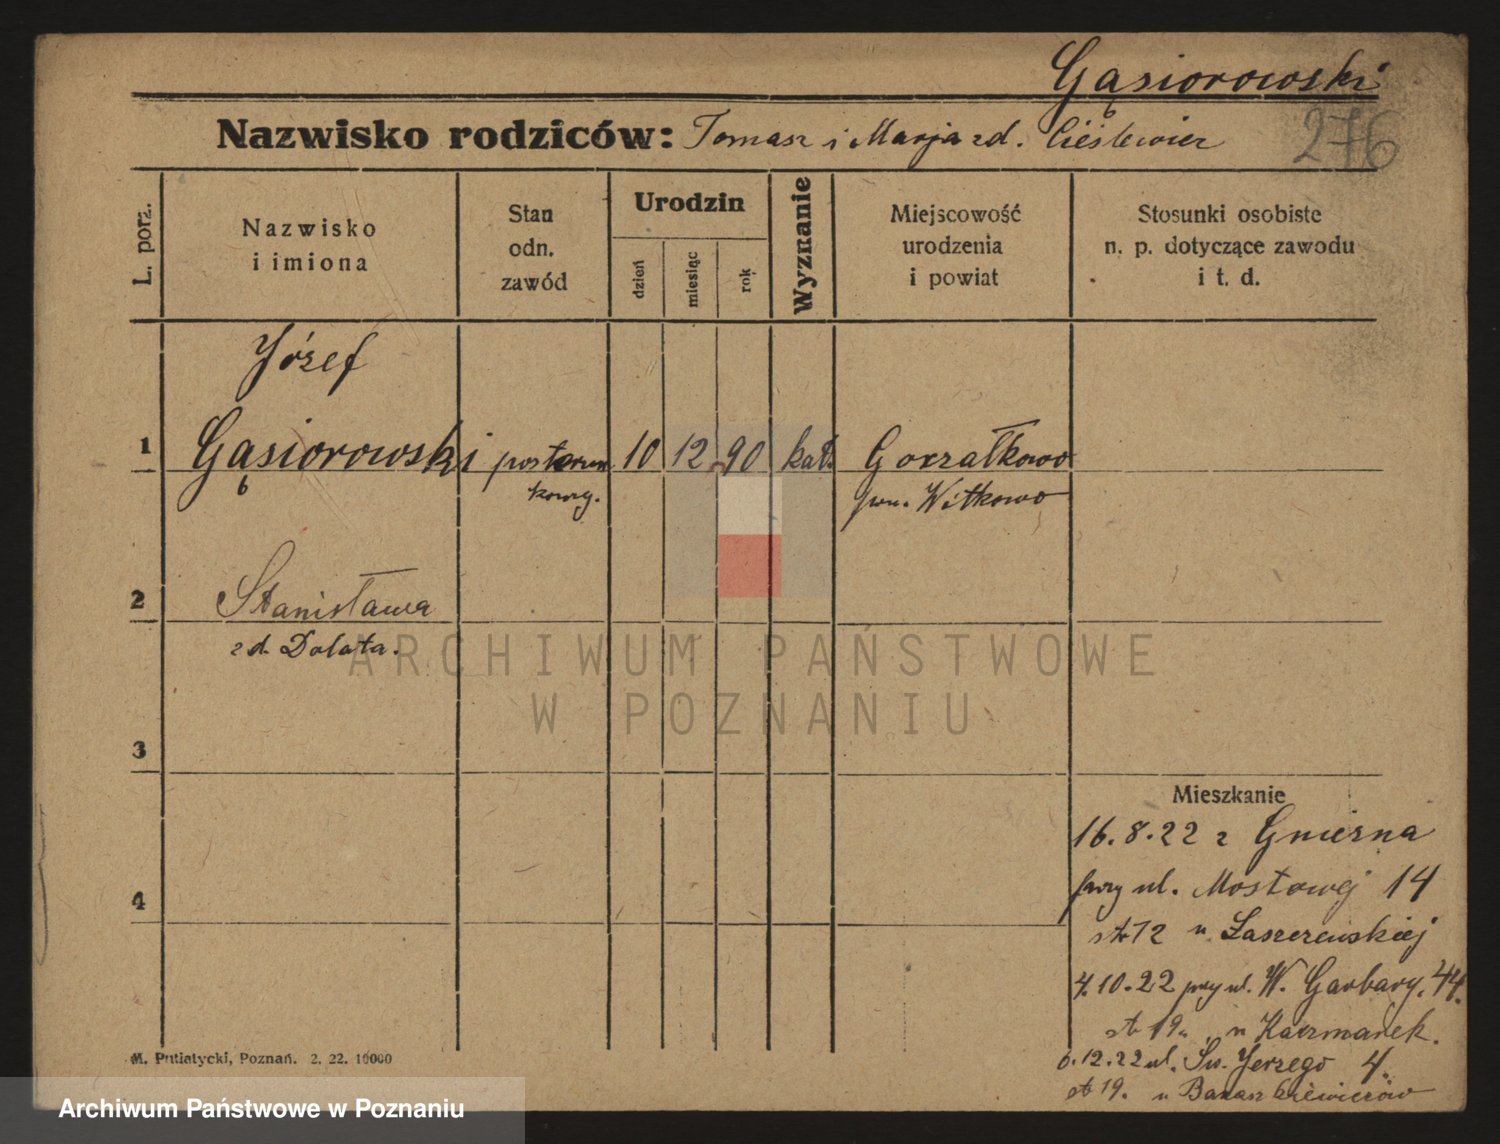 Gąsiorowski
276
Nazwisko rodziców: Tomasz i Marja zd. Cieślewicz
L. porz.
Nazwisko
i imiona
Stan
odn.
zawód
Urodzin
dzień
miesiąc
rok
Wyznanie
Miejscowość
urodzenia
i powiat
Stosunki osobiste
n. p. dotyczące zawodu
i t. d.
Józef
1 Gąsiorowski posterun 10 12 90 kat. Gorzałkowo
kowy. pow. Witkowo
2 Stanisława
zd. Dolata.
ARCHIWUM PAŃSTWOWE
W POZNANIU
3
Mieszkanie
16.8.22 z Gniezna
przy ul. Mostowej 14
4
st 12 u Łaszczewskiej
4.10.22 przy ul. W. Garbary. 44.
st 19. u Kaczmarek.
6.12.22 ul. Św. Jerzego 4.
st 19. u
M. Putiatycki, Poznań. 2. 22. 10000
Archiwum Państwowe w Poznaniu